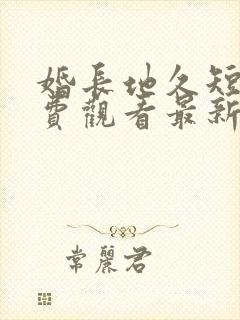 婚長地久短
費觀看最新
常麗君